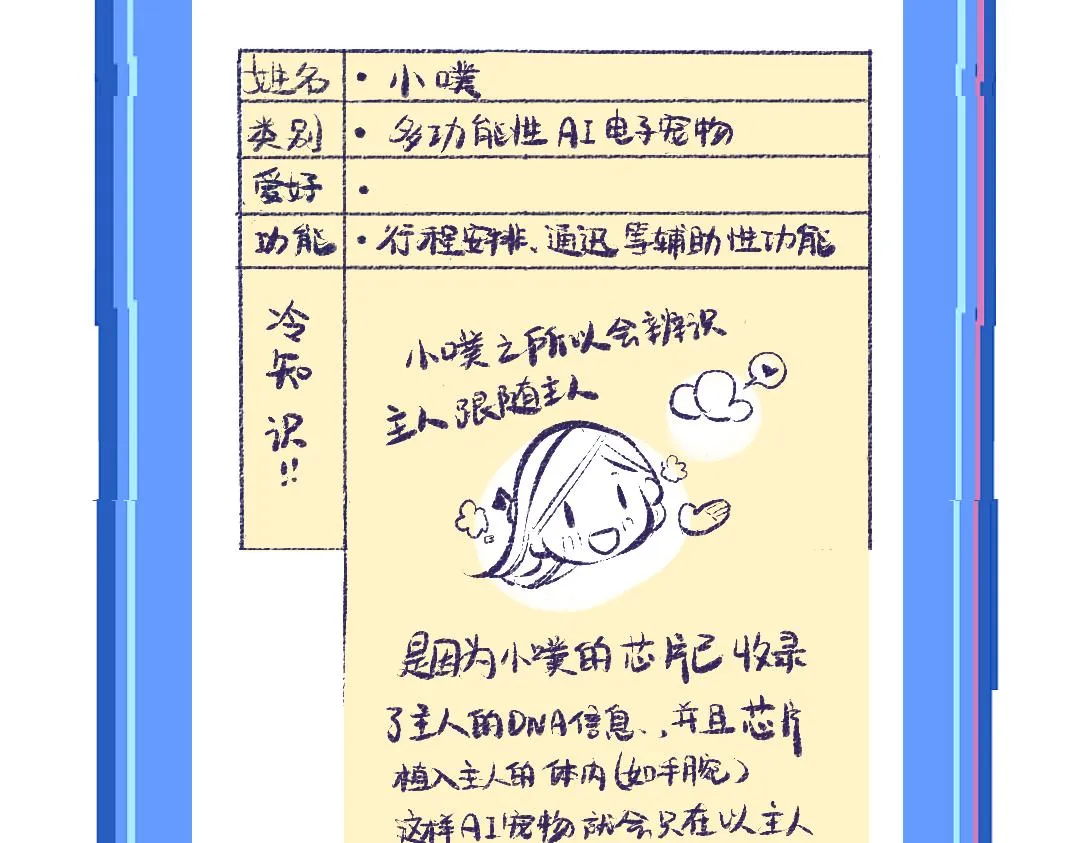 姓名 • 小噗
类别 • 多功能性AI电子宠物
爱好 •
功能 • 行程安排、通迅等辅助性功能
冷知识!!
小噗之所以会辨识
主人跟随主人
是因为小噗的芯片已收录
了主人的DNA信息.,并且芯片
植入主人的体内(如手腕)
这样AI宠物就会只在以主人